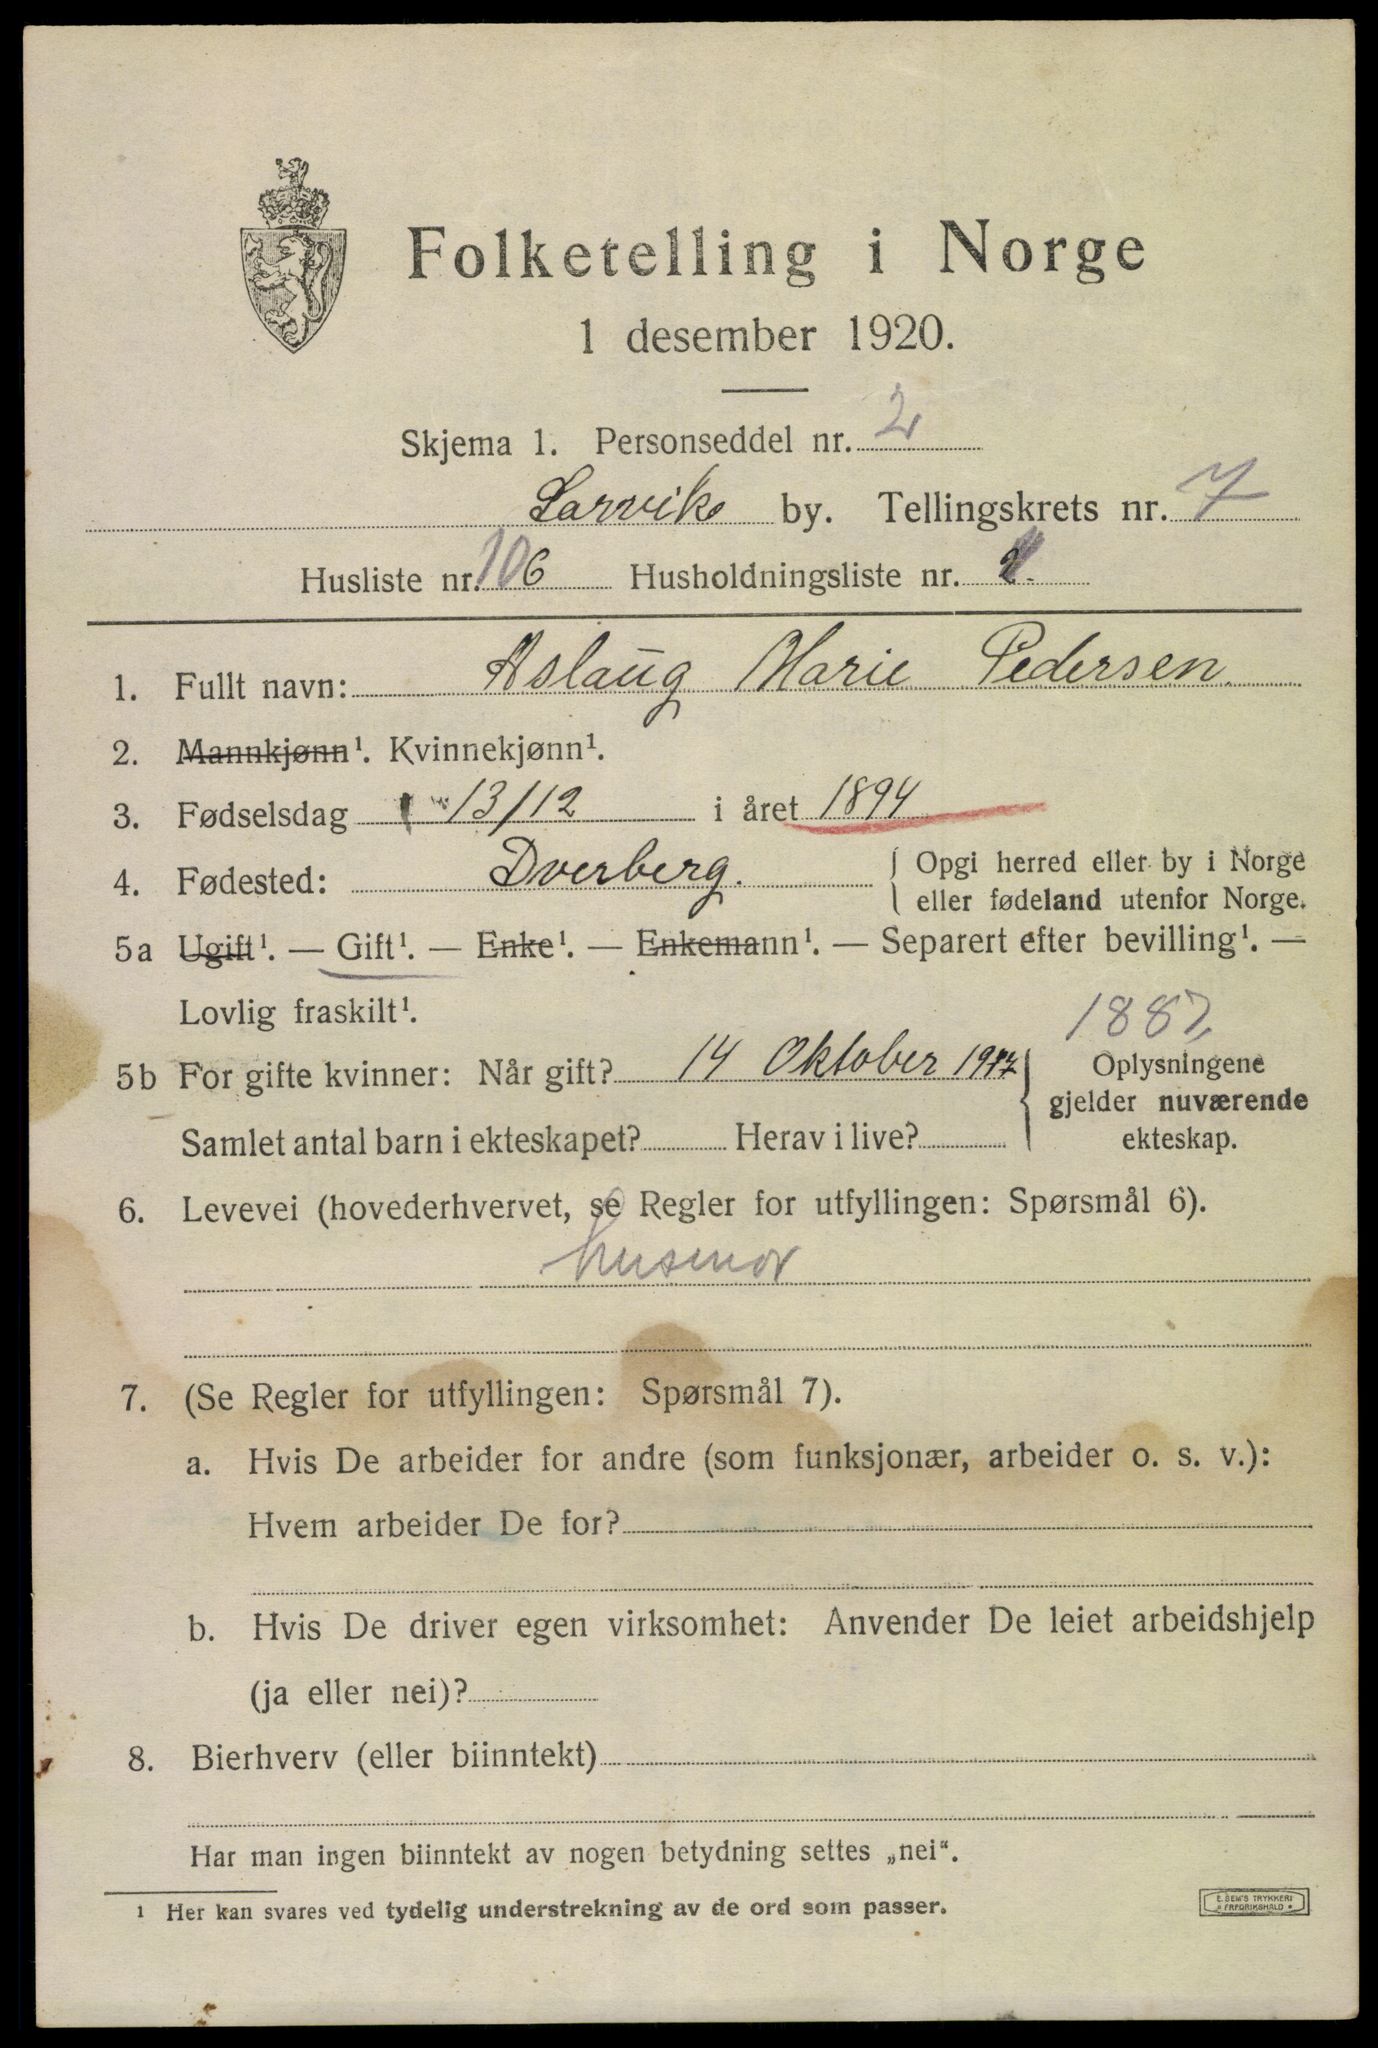 Folketelling i Norge
1 desember 1920.
Skjema 1. Personseddel nr. 2
Larvik by. Tellingskrets nr. 7
Husliste nr. 106 Husholdningsliste nr.
1. Fullt navn: Aslaug Marie Pedersen.
2. Mannkjønn¹. Kvinnekjønn¹.
3. Fødselsdag 13/12 i året 1894
4. Fødested: Dverberg. { Opgi herred eller by i Norge
eller fødeland utenfor Norge.
5a Ugift¹. — Gift¹. — Enke¹. — Enkemann¹. — Separert efter bevilling¹. —
Lovlig fraskilt¹.
188
5b For gifte kvinner: Når gift? 14 Oktober { Oplysningene
gjelder nuværende
Samlet antal barn i ekteskapet? Herav i live? ekteskap.
6. Levevei (hovederhvervet, se Regler for utfyllingen: Spørsmål 6).
husmor
7. (Se Regler for utfyllingen: Spørsmål 7).
a. Hvis De arbeider for andre (som funksjonær, arbeider o. s. v.):
Hvem arbeider De for?
b. Hvis De driver egen virksomhet: Anvender De leiet arbeidshjelp
(ja eller nei)?
8. Bierhverv (eller biinntekt)
Har man ingen biinntekt av nogen betydning settes „nei“.
¹ Her kan svares ved tydelig understrekning av de ord som passer.
E. SEM'S TRYKKERI
FREDRIKSHALD